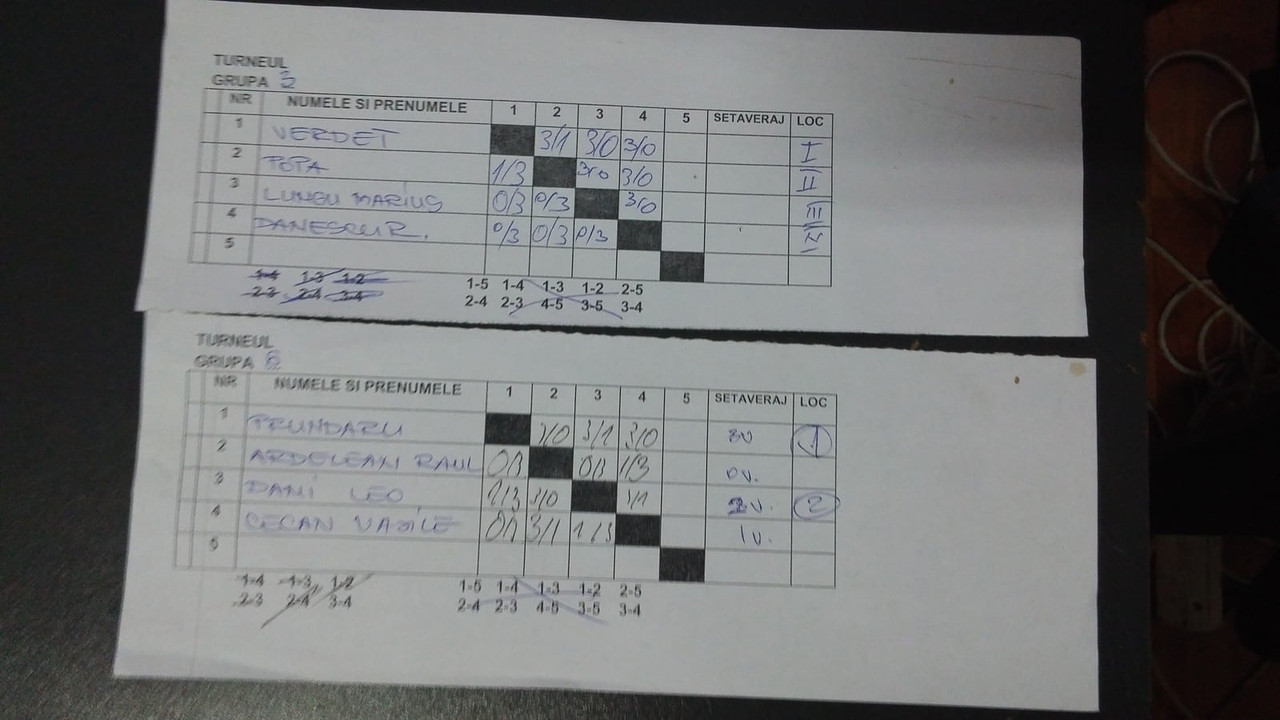 TURNEUL
GRUPA 3
NR NUMELE SI PRENUMELE 1 2 3 4 5 SETAVERAJ LOC
1 VERDET 3/1 3/0 3/0 I
2 POPA 1/3 3/0 3/0 II
3 LUNGU MARIUS 0/3 0/3 3/0 III
4 DANESCU R. 0/3 0/3 0/3 IV
5
1-4 1-3 1-2 1-5 1-4 1-3 1-2 2-5
2-3 2-4 3-4 2-4 2-3 4-5 3-5 3-4
TURNEUL
GRUPA
NR NUMELE SI PRENUMELE 1 2 3 4 5 SETAVERAJ LOC
1 TRUNDARU 3/0 3/1 3/0 3V 1
2 ARDELEAN RAUL 0/3 0/3 1/3 0V.
3 DANI LEO 1/3 3/0 3/1 2V. 2
4 CECAN VASILE 0/3 3/1 1/3 1V.
5
1-4 1-3 1-2 1-5 1-4 1-3 1-2 2-5
2-3 2-4 3-4 2-4 2-3 4-5 3-5 3-4